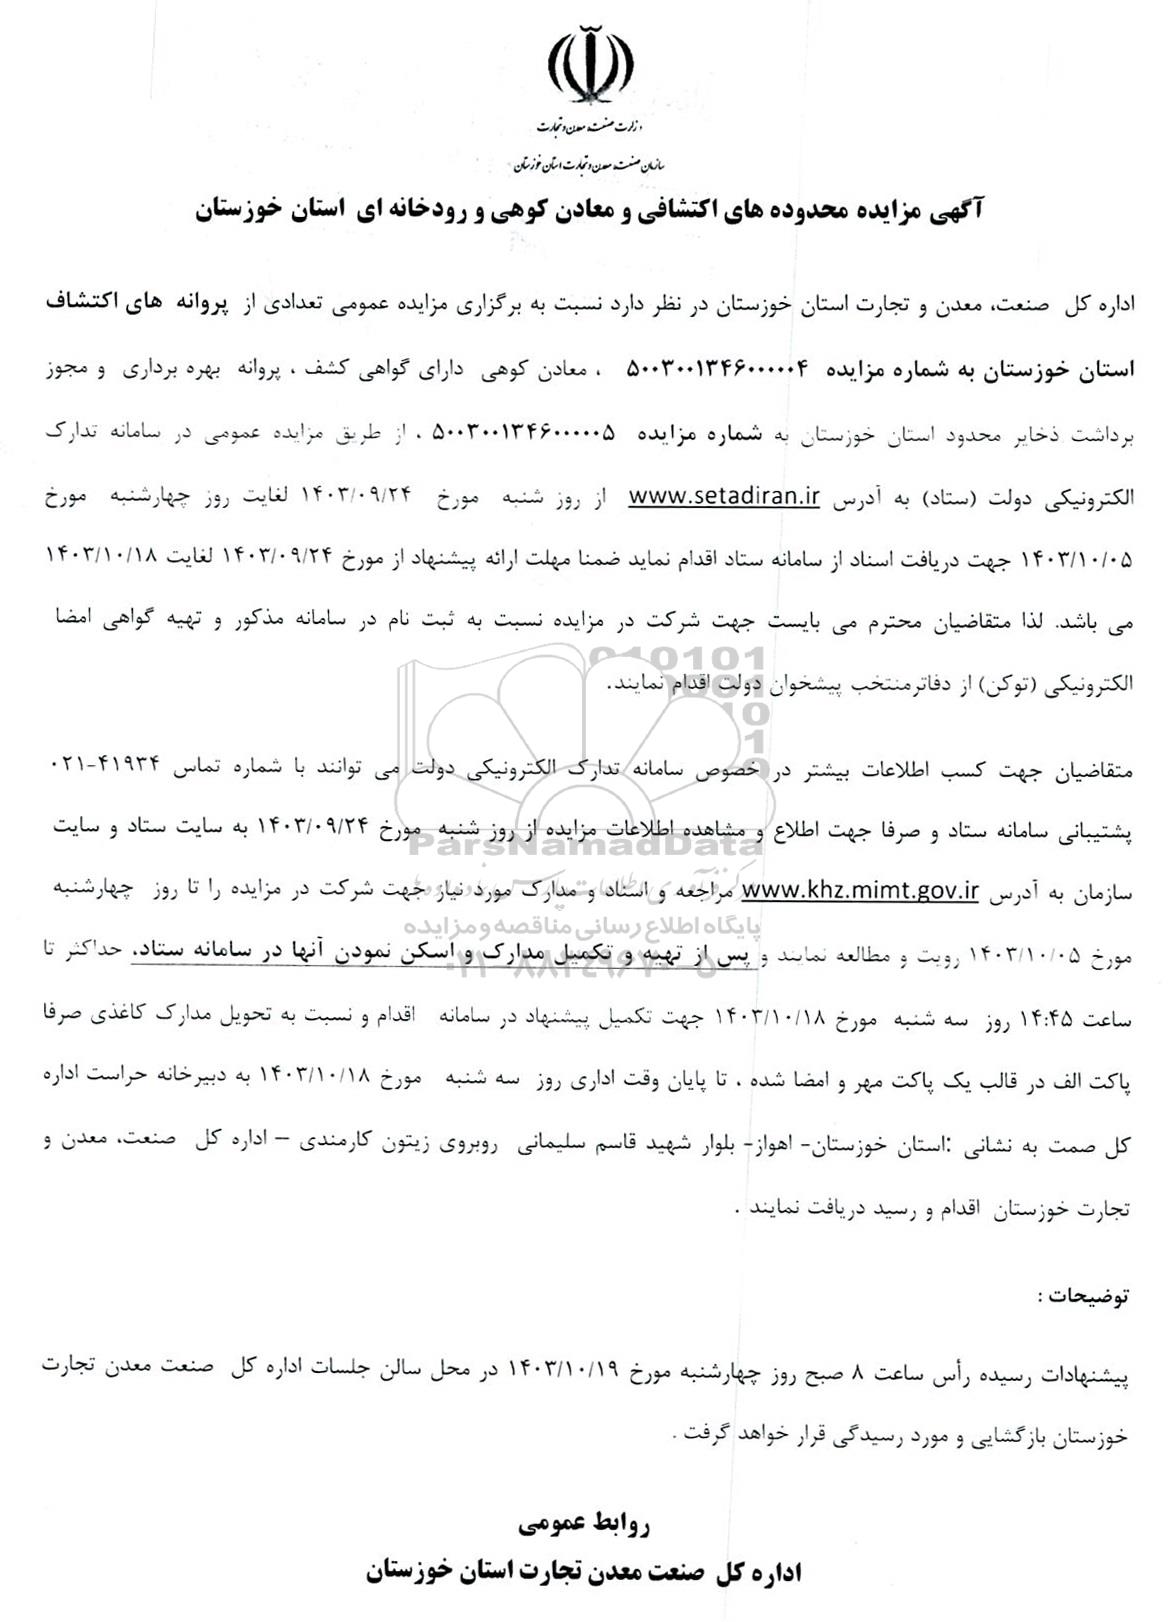 وزارت صنعت، معدن و تجارت
سازمان صنعت، معدن و تجارت استان خوزستان
آگهی مزایده محدوده های اکتشافی و معادن کوهی و رودخانه ای استان خوزستان
اداره کل صنعت، معدن و تجارت استان خوزستان در نظر دارد نسبت به برگزاری مزایده عمومی تعدادی از پروانه های اکتشاف
استان خوزستان به شماره مزایده ۵۰۰۳۰۰۱۳۴۶۰۰۰۰۰۴ ، معادن کوهی دارای گواهی کشف ، پروانه بهره برداری و مجوز
برداشت ذخایر محدود استان خوزستان به شماره مزایده ۵۰۰۳۰۰۱۳۴۶۰۰۰۰۰۵ ، از طریق مزایده عمومی در سامانه تدارک
الکترونیکی دولت (ستاد) به آدرس www.setadiran.ir از روز شنبه مورخ ۱۴۰۳/۰۹/۲۴ لغایت روز چهارشنبه مورخ
۱۴۰۳/۱۰/۰۵ جهت دریافت اسناد از سامانه ستاد اقدام نماید ضمنا مهلت ارائه پیشنهاد از مورخ ۱۴۰۳/۰۹/۲۴ لغایت ۱۴۰۳/۱۰/۱۸
می باشد. لذا متقاضیان محترم می بایست جهت شرکت در مزایده نسبت به ثبت نام در سامانه مذکور و تهیه گواهی امضا
الکترونیکی (توکن) از دفاترمنتخب پیشخوان دولت اقدام نمایند.
متقاضیان جهت کسب اطلاعات بیشتر در خصوص سامانه تدارک الکترونیکی دولت می توانند با شماره تماس ۴۱۹۳۴-۰۲۱
پشتیبانی سامانه ستاد و صرفا جهت اطلاع و مشاهده اطلاعات مزایده از روز شنبه مورخ ۱۴۰۳/۰۹/۲۴ به سایت ستاد و سایت
ParsNamadData
سازمان به آدرس www.khz.mimt.gov.ir مراجعه و اسناد و مدارک مورد نیاز جهت شرکت در مزایده را تا روز چهارشنبه
پایگاه اطلاع رسانی مناقصه و مزایده
مورخ ۱۴۰۳/۱۰/۰۵ رویت و مطالعه نمایند و پس از تهیه و تکمیل مدارک و اسکن نمودن آنها در سامانه ستاد، حداکثر تا
۰۲۱-۸۸۳۴۹۶۷۰-۵
ساعت ۱۴:۴۵ روز سه شنبه مورخ ۱۴۰۳/۱۰/۱۸ جهت تکمیل پیشنهاد در سامانه اقدام و نسبت به تحویل مدارک کاغذی صرفا
پاکت الف در قالب یک پاکت مهر و امضا شده ، تا پایان وقت اداری روز سه شنبه مورخ ۱۴۰۳/۱۰/۱۸ به دبیرخانه حراست اداره
کل صمت به نشانی :استان خوزستان- اهواز- بلوار شهید قاسم سلیمانی روبروی زیتون کارمندی – اداره کل صنعت، معدن و
تجارت خوزستان اقدام و رسید دریافت نمایند .
توضیحات :
پیشنهادات رسیده رأس ساعت ۸ صبح روز چهارشنبه مورخ ۱۴۰۳/۱۰/۱۹ در محل سالن جلسات اداره کل صنعت معدن تجارت
خوزستان بازگشایی و مورد رسیدگی قرار خواهد گرفت .
روابط عمومی
اداره کل صنعت معدن تجارت استان خوزستان